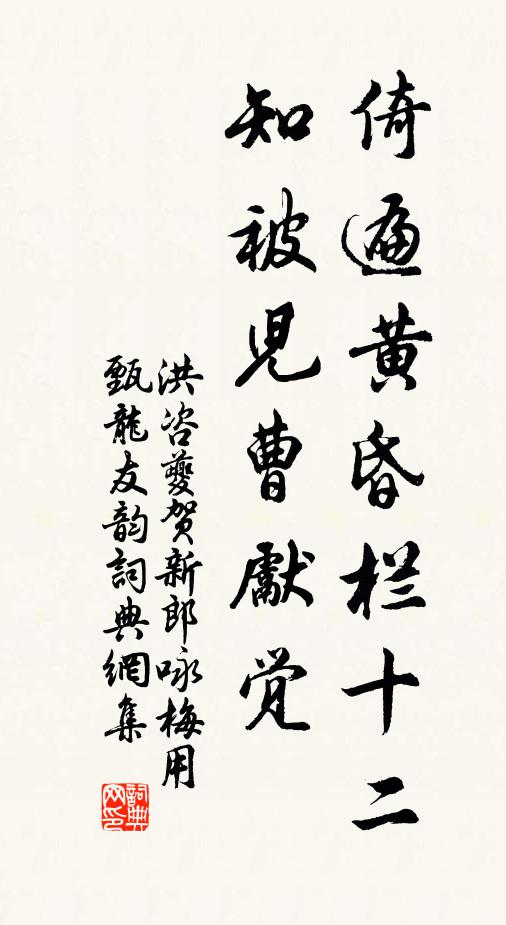 倚遍黄昏栏十二
知被児曹獻觉
洪咨夔贺新郎咏梅用
甄龍友韵詞典網集
詞典网印